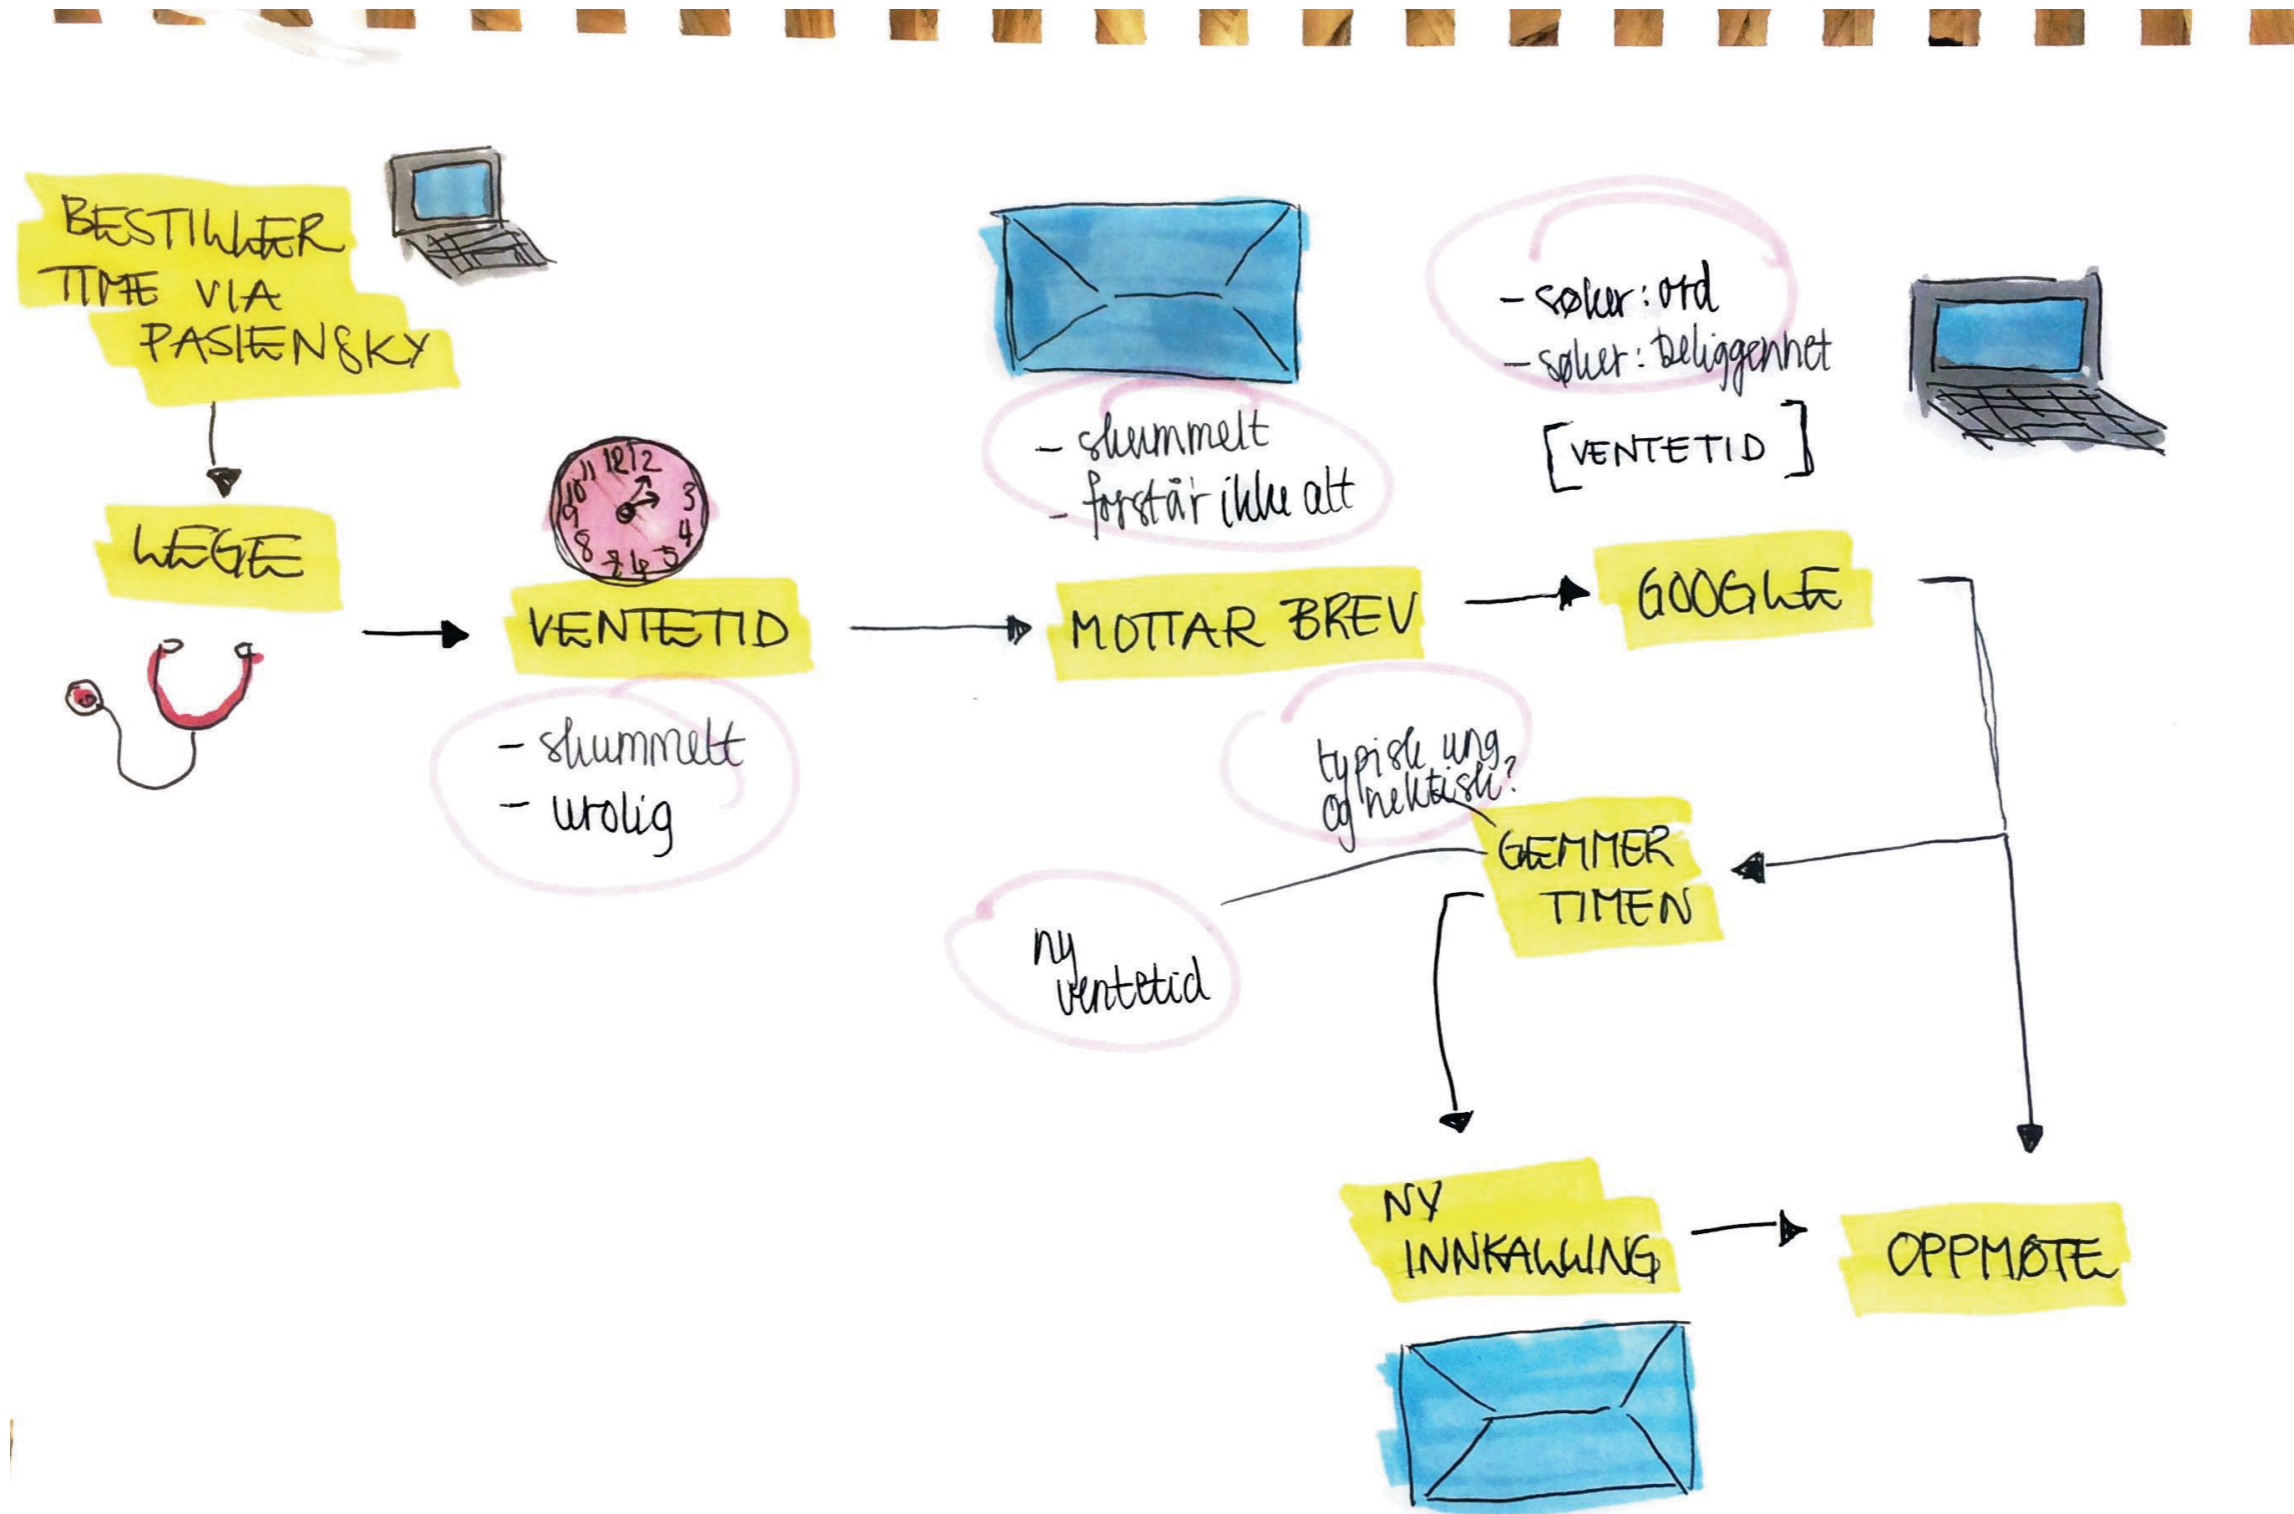 BESTILLER
TIME VIA
PASIENSKY
LEGE
11 12 1 2
10
9
8
3
4
5
7
VENTETID
- skummelt
- urolig
- skummelt
- forstår ikke alt
MOTTAR BREV
- søker: ord
- søker: beliggenhet
[VENTETID]
GOOGLE
typisk ung
og hektisk?
GEMMER
TIMEN
ny
ventetid
NY
INNKALLING
OPPMØTE